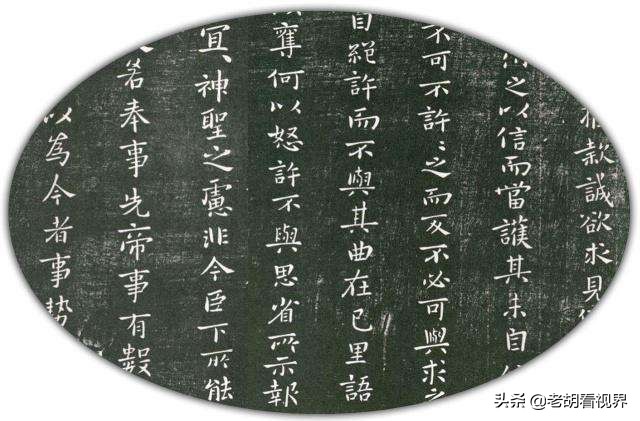 推款誠欲求見
之以信而當護其未自
不可不許〻之而反不必可與求之
自絕許而不與其曲在己里語
奪何以怒許不與思省所示報
冝〻神聖之慮非今臣下所能
若奉事先帝事有數
以為今者事勢
头条 @老胡看视界